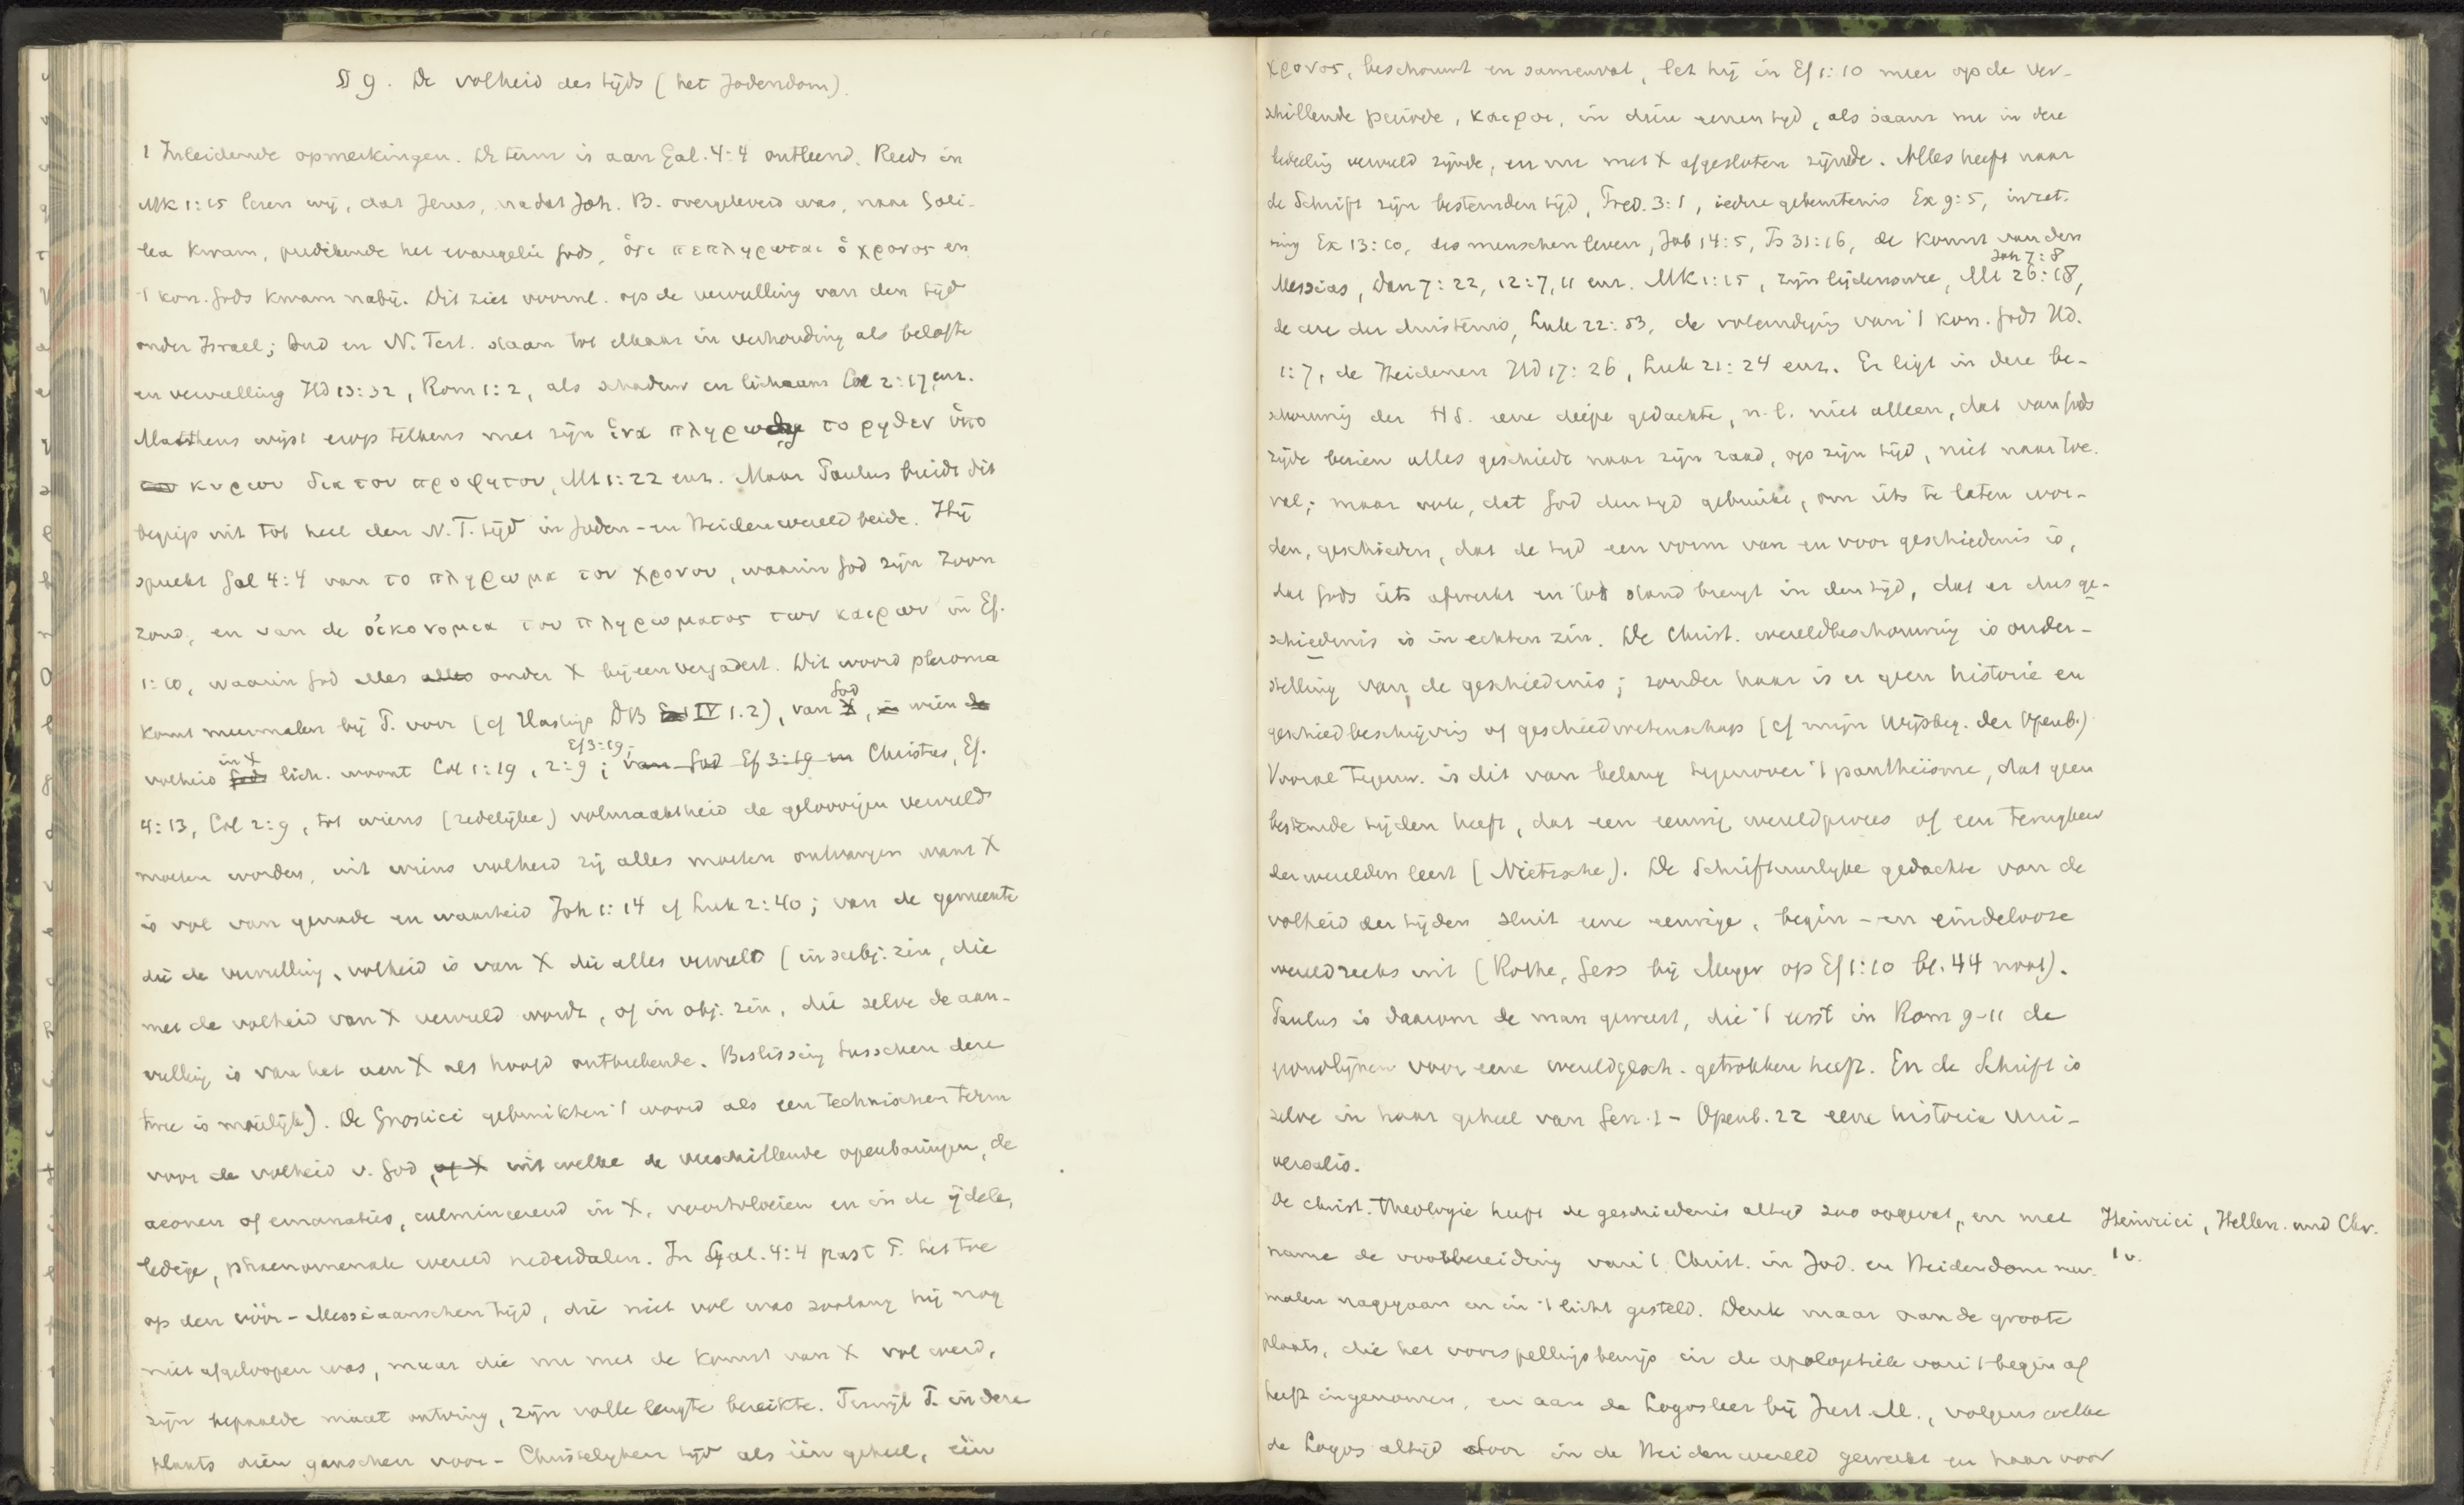 § 9. De volheid des tijds (het Jodendom).
1 Inleidende opmerkingen. De term is aan Gal. 4:4 ontleend. Reeds in
Mk 1:15 lezen wij, dat Jezus, nadat Joh. B. overgeleverd was, naar Gali-
lea kwam, predikende het evangelie Gods, ὁτι πεπληρωται ὁ χρονος en
't kon. Gods kwam nabij. Dit ziet voornl. op de vervulling van den tijd
onder Israel; Oud en N. Test. staan tot elkaar in verhouding als belofte
en vervulling Hd 13:32, Rom 1:2, als schaduw en lichaam Col 2:17 enz.
Mattheus wijst erop telkens met zijn ἱνα πληρωθῃ το ρηθεν ὑπο
του κυριου δια του προφητου, Mt 1:22 enz. Maar Paulus breidt dit
begrip uit tot heel den N. T. tijd in Joden- en Heidenwereld beide. Hij
spreekt Gal 4:4 van το πληρωμα του χρονου, waarin God zijn Zoon
zond, en van de οἰκονομια του πληρωματος των καιρων in Ef.
1:10, waarin God alles alles onder X bijeenvergadert. Dit woord pleroma
komt meermalen bij P. voor (cf Hastings DB IV 1.2), van God X, in wien de
volheid in X Gods lich. woont Col 1:19, 2:9; Ef 3:19; van God Ef 3:19 en Christus, Ef.
4:13, Col 2:9, tot wiens (zedelijke) volmaaktheid de geloovigen vervuld
moeten worden, uit wiens volheid zij alles moeten ontvangen want X
is vol van genade en waarheid Joh 1:14 cf Luk 2:40; van de gemeente
die de vervulling, volheid is van X die alles vervult (in subj. zin, die
met de volheid van X vervuld wordt, of in obj. zin, die zelve de aan-
vulling is van het aan X als hoofd ontbrekende. Beslissing tusschen deze
twee is moeilijk). De Gnostici gebruikten 't woord als een technischen term
voor de volheid v. God, of X uit welke de verschillende openbaringen, de
aeonen of emanaties, culmineerend in X, voortvloeien en in de ijdele,
ledige, phaenomenale wereld nederdalen. In Gal. 4:4 past P. het toe
op den vóór-Messiaanschen tijd, die niet vol was zoolang hij nog
niet afgeloopen was, maar die nu met de komst van X vol werd,
zijn bepaalde maat ontving, zijn volle lengte bereikte. Terwijl P. in deze
plaats dien ganschen voor-Christelijken tijd als één geheel, één
χρονος, beschouwt en samenvat, let hij in Ef 1:10 meer op de ver-
schillende periode, καιροι, in dien eenen tijd, als daarna nu in deze
bedeeling vervuld zijnde, en nu met X afgesloten zijnde. Alles heeft naar
de Schrift zijn bestemden tijd, Pred. 3:1, iedere gebeurtenis Ex 9:5, inzet-
ting Ex 13:10, des menschen leven, Job 14:5, Ps 31:16, de komst van den
Messias, Dan 7:22, 12:7, 11 enz. Mk 1:15, zijn lijdensure, Joh 7:8 Mt 26:18,
de ure der duisternis, Luk 22:53, de voleindiging van 't kon. Gods Hd.
1:7, de Heidenen Hd 17:26, Luk 21:24 enz. Er ligt in deze be-
schouwing der HS. eene diepe gedachte, n.l. niet alleen, dat van Gods
zijde bezien alles geschiedt naar zijn raad, op zijn tijd, niet naar toe-
val; maar ook, dat God den tijd gebruikt, om iets te laten wor-
den, geschieden, dat de tijd een vorm van en voor geschiedenis is,
dat Gods iets afwerkt en tot stand brengt in den tijd, dat er dus ge-
schiedenis is in echten zin. De Christ. wereldbeschouwing is onder-
stelling van de geschiedenis; zonder haar is er geen historie en
geschiedbeschrijving of geschiedwetenschap (cf mijn Wijsbeg. der Openb.)
Vooral tegenw. is dit van belang tegenover 't pantheïsme, dat geen
bestemde tijden heeft, dat een eeuwig wereldproces of een terugkeer
der werelden leert (Nietzsche). De Schriftuurlijke gedachte van de
volheid der tijden sluit eene eeuwige, begin- en eindelooze
wereldreeks uit (Rothe, Gess bij Meyer op Ef 1:10 bl. 44 noot).
Paulus is daarom de man geweest, die 't eerst in Rom 9-11 de
grondlijnen voor eene wereldgesch. getrokken heeft. En de Schrift is
zelve in haar geheel van Gen. 1 - Openb. 22 eene historia uni-
versalis.
De christ. Theologie heeft de geschiedenis altijd zoo opgevat, en met
name de voorbereiding van 't Christ. in Jod. en Heidendom meer-
malen nagegaan en in 't licht gesteld. Denk maar aan de groote
plaats, die het voorspellingsbewijs in de apologetiek van 't begin af
heeft ingenomen, en aan de Logosleer bij Just. M., volgens welke
de Logos altijd door in de Heidenwereld gewerkt en haar voor
Heinrici, Hellen. und Chr.
1 v.